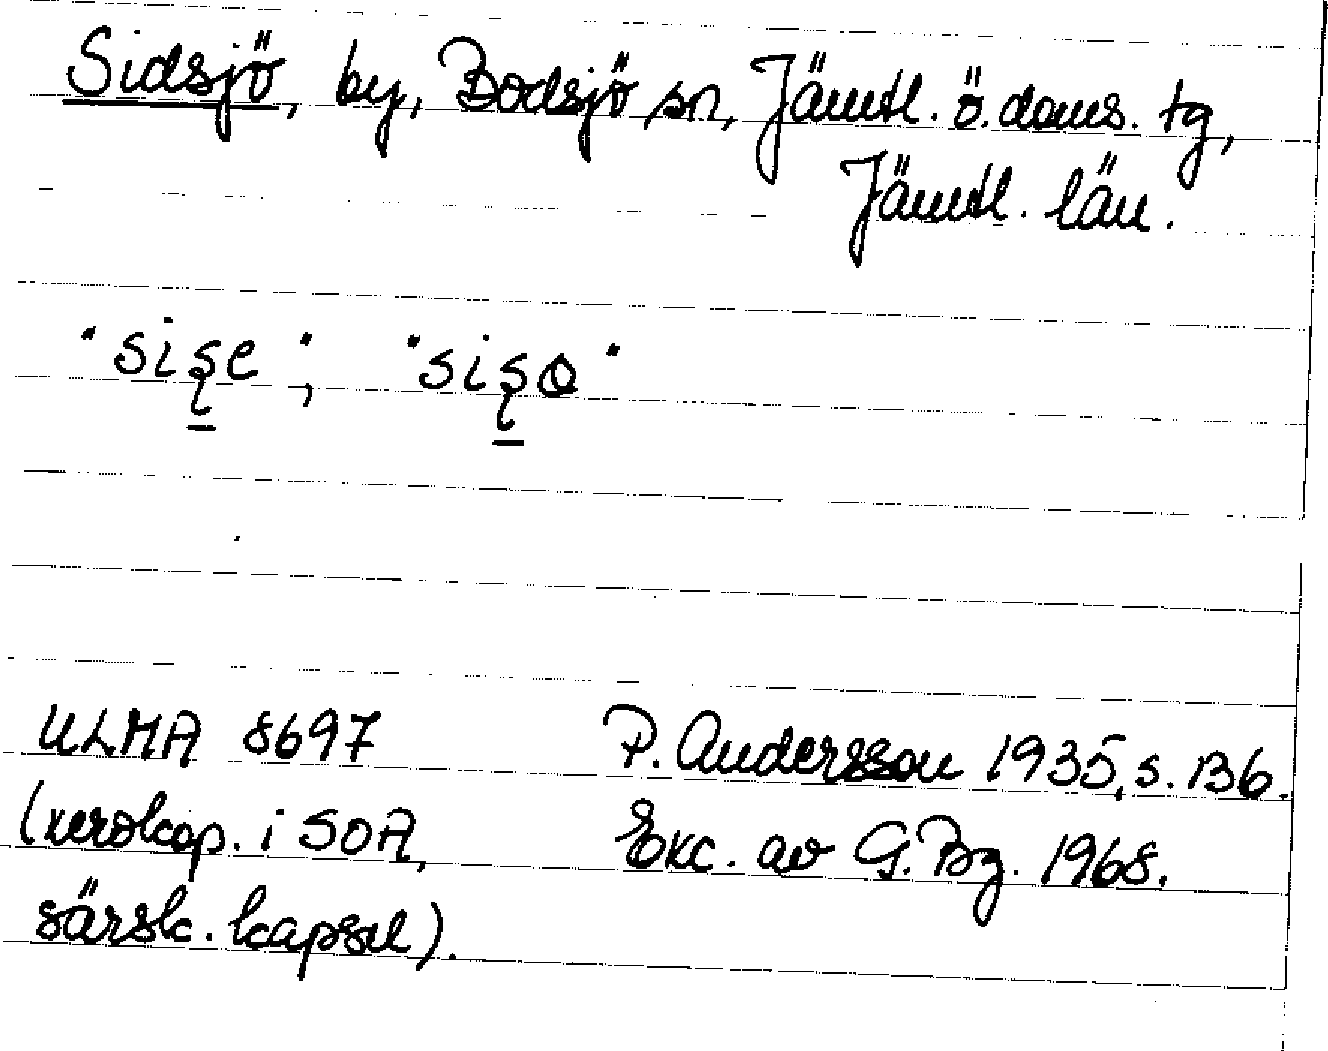 Sidsjö, by, Bodsjö sn, Jämtl. ö. doms. tg,
Jämtl. län.
"siʂe"; "siʂo"
ULMA 8697 P. Andersson 1935, s. 136.
(xerokop. i SOA, Exc. av G. Bg. 1968.
särsk. kapsel).